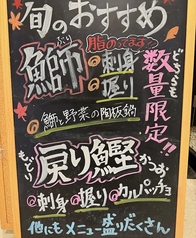 旬のおすすめ
鰤 ぶり
脂のってます!
@刺身
@握り
どちらも数量限定!!
@鰤と野菜の陶板鍋
もどり
戻り鰹 かつお
@刺身 @握り @カルパッチョ
他にもメニュー盛りだくさん